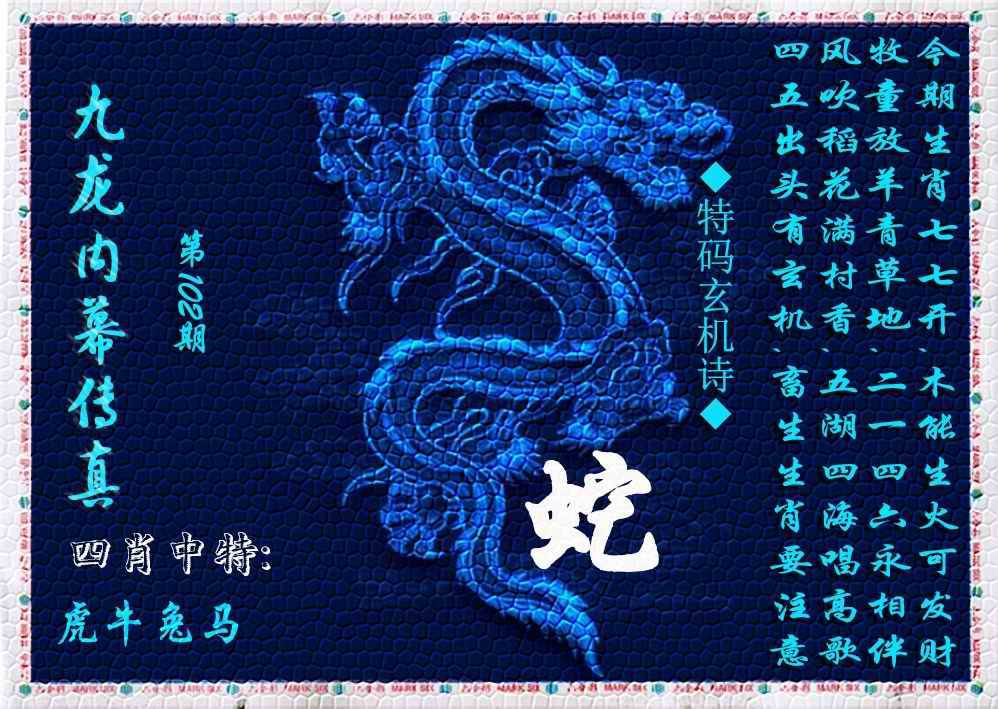 九龙内幕传真
第102期
四肖中特:
虎牛兔马
蛇
◆特码玄机诗◆
今期生肖七七开、木能生火可发财
牧童放羊青草地、二一四六永相伴
风吹稻花满村香、五湖四海唱高歌
四五出头有玄机、畜生生肖要注意
MARK SIX